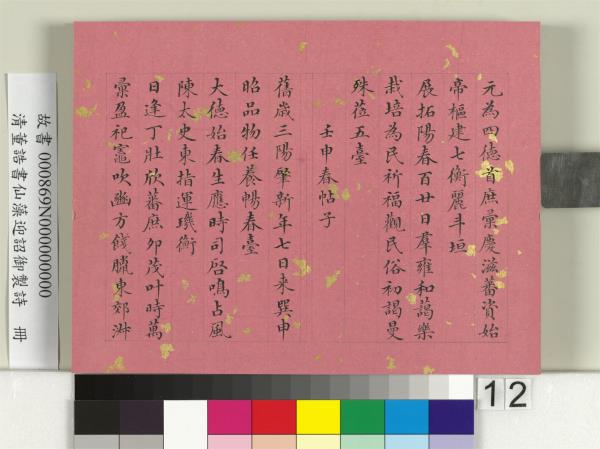 元為四德首庶彙慶滋蕃資始
帝樞建七衡麗斗垣
展拓陽春百廿日羣雍和藹樂
栽培為民祈福觀民俗初謁曼
殊莅五臺
壬申春帖子
舊歲三陽肇新年七日來巽申
昭品物任養暢春臺
大德始春生應時司啓鳴占風
陳太史東指運璣衡
日逢丁壯欣蕃庶卯茂叶時萬
彙盈祀竈吹豳方餞臘東郊
故書 000869N000000000
清董誥書仙藻迎韶御製詩 冊
12